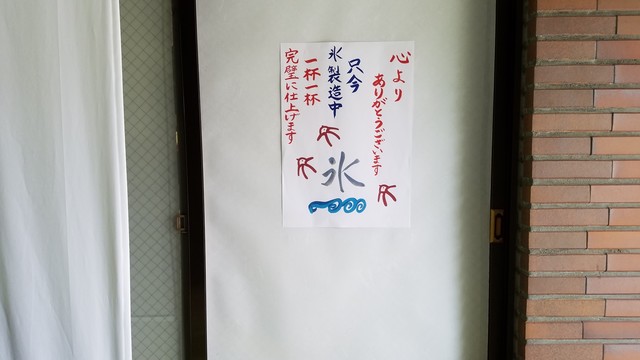 心より
ありがとうございます
只今
氷製造中
一杯一杯
完璧に仕上げます
氷